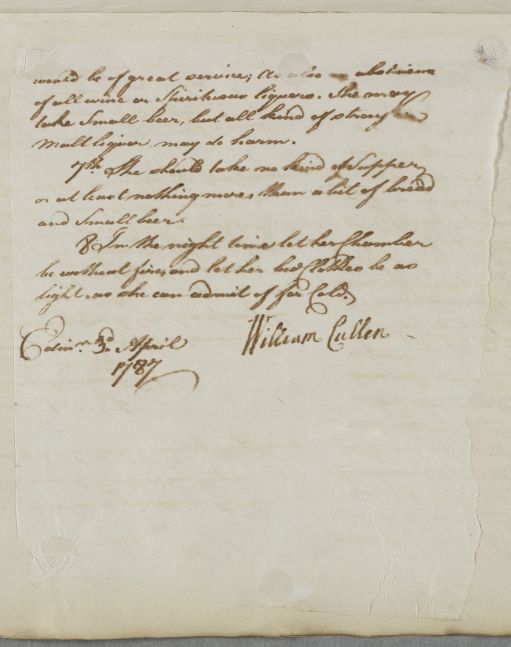 would be of great service; as also abstinence
of all wine or Spirituous liquors. She may
take Small beer, but all kind of strong
Malt liquor may do harm.
7th She should take no kind of Supper
or at least nothing more than a bit of bread
and Small beer.
8 In the night time let her Chamber
be without fire, and let her bed Clothes be as
light as she can admit of for Cold.
William Cullen
Edinr. 3d. April
1787